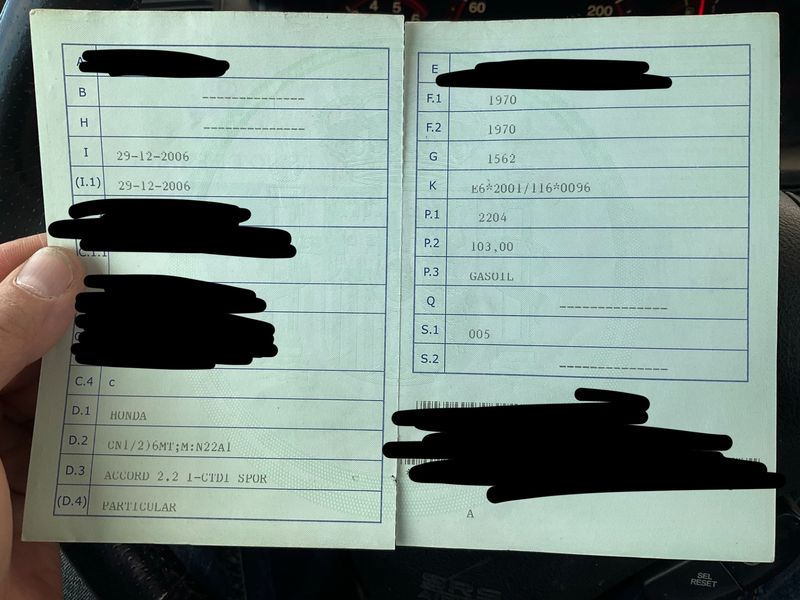 4 5 6 60 200
B -------------
H -------------
I 29-12-2006
(I.1) 29-12-2006
C.1.1
C.4 c
D.1 HONDA
D.2 CN1/2)6MT;M:N22A1
D.3 ACCORD 2.2 I-CTDI SPOR
(D.4) PARTICULAR
E
F.1 1970
F.2 1970
G 1562
K E6*2001/116*0096
P.1 2204
P.2 103,00
P.3 GASOIL
Q --------------
S.1 005
S.2 --------------
A
SRS
SEL
RESET